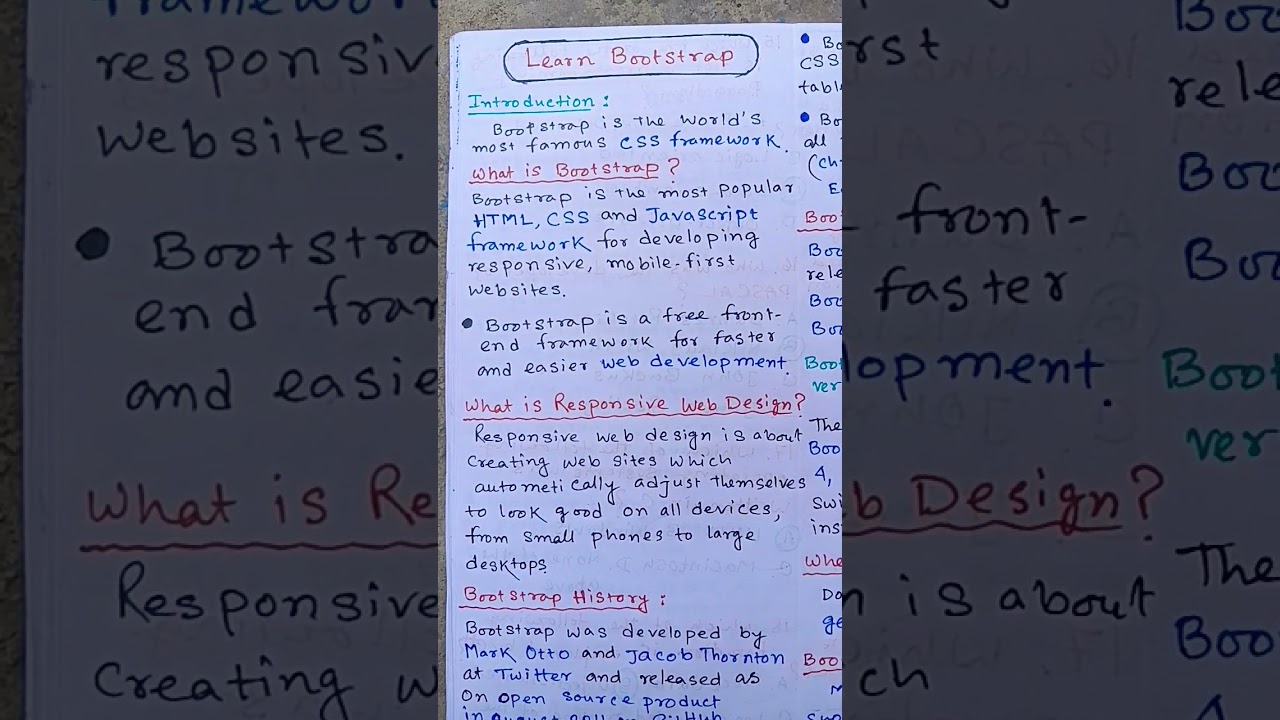 Learn Bootstrap
Introduction :
Bootstrap is the world's
most famous CSS framework.
What is Bootstrap ?
Bootstrap is the most popular
HTML, CSS and Javascript
framework for developing
responsive, mobile-first
websites.
• Bootstrap is a free front-
end framework for faster
and easier web development.
What is Responsive Web Design?
Responsive web design is about
creating web sites which
autometically adjust themselves
to look good on all devices,
from small phones to large
desktops.
Bootstrap History :
Bootstrap was developed by
Mark Otto and Jacob Thornton
at Twitter and released as
on open source product
in august 2011 on GitHub
CSS
all
The
4,